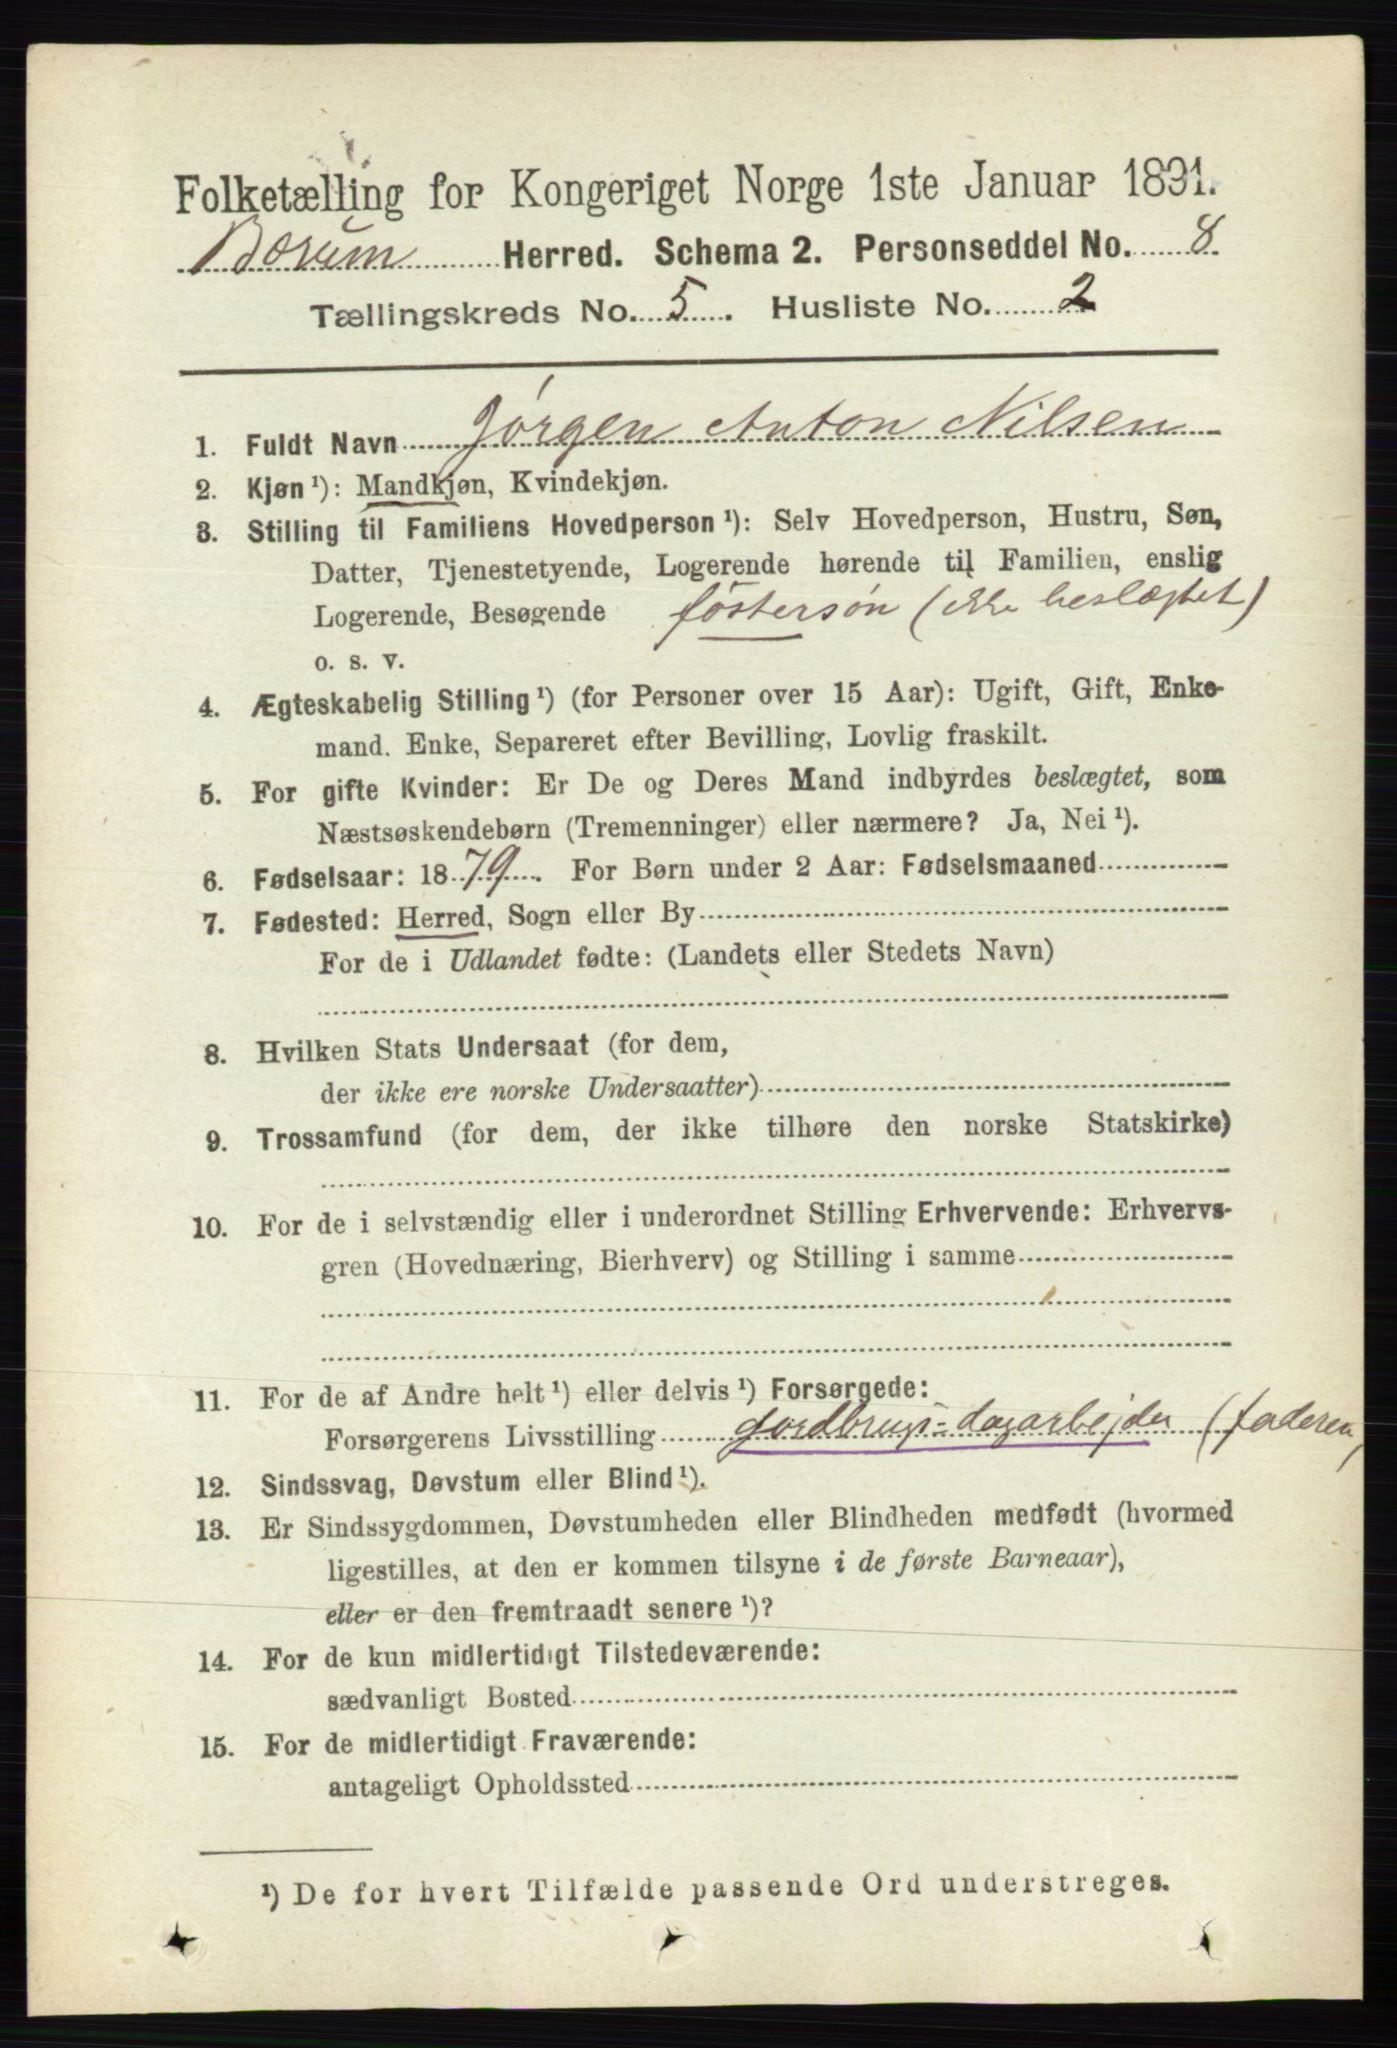 Folketælling for Kongeriget Norge 1ste Januar 1891.
Bærum Herred. Schema 2. Personseddel No. 8
Tællingskreds No. 5. Husliste No. 2
1. Fuldt Navn Jørgen Anton Nilsen
2. Kjøn ¹): Mandkjøn, Kvindekjøn.
3. Stilling til Familiens Hovedperson ¹): Selv Hovedperson, Hustru, Søn,
Datter, Tjenestetyende, Logerende hørende til Familien, enslig
Logerende, Besøgende fostersøn (ikke beslægtet)
o. s. v.
4. Ægteskabelig Stilling ¹) (for Personer over 15 Aar): Ugift, Gift, Enke-
mand. Enke, Separeret efter Bevilling, Lovlig fraskilt.
5. For gifte Kvinder: Er De og Deres Mand indbyrdes beslægtet, som
Næstsøskendebørn (Tremenninger) eller nærmere? Ja, Nei ¹).
6. Fødselsaar: 1879. For Børn under 2 Aar: Fødselsmaaned
7. Fødested: Herred, Sogn eller By
For de i Udlandet fødte: (Landets eller Stedets Navn)
8. Hvilken Stats Undersaat (for dem,
der ikke ere norske Undersaatter)
9. Trossamfund (for dem, der ikke tilhøre den norske Statskirke)
10. For de i selvstændig eller i underordnet Stilling Erhvervende: Erhvervs-
gren (Hovednæring, Bierhverv) og Stilling i samme
11. For de af Andre helt ¹) eller delvis ¹) Forsørgede:
Forsørgerens Livsstilling Jordbrugs=dagarbejder (faderen)
12. Sindssvag, Døvstum eller Blind ¹).
13. Er Sindssygdommen, Døvstumheden eller Blindheden medfødt (hvormed
ligestilles, at den er kommen tilsyne i de første Barneaar),
eller er den fremtraadt senere ¹)?
14. For de kun midlertidigt Tilstedeværende:
sædvanligt Bosted
15. For de midlertidigt Fraværende:
antageligt Opholdssted
¹) De for hvert Tilfælde passende Ord understreges.